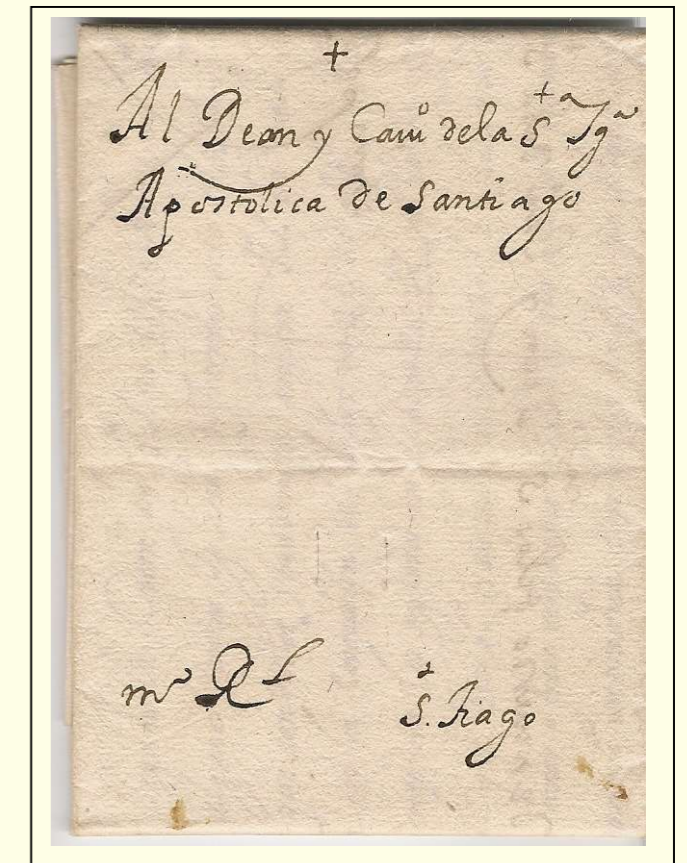 +
Al Dean y Cavº dela Sta Iga
Apostolica de Santiago
S. Tiago